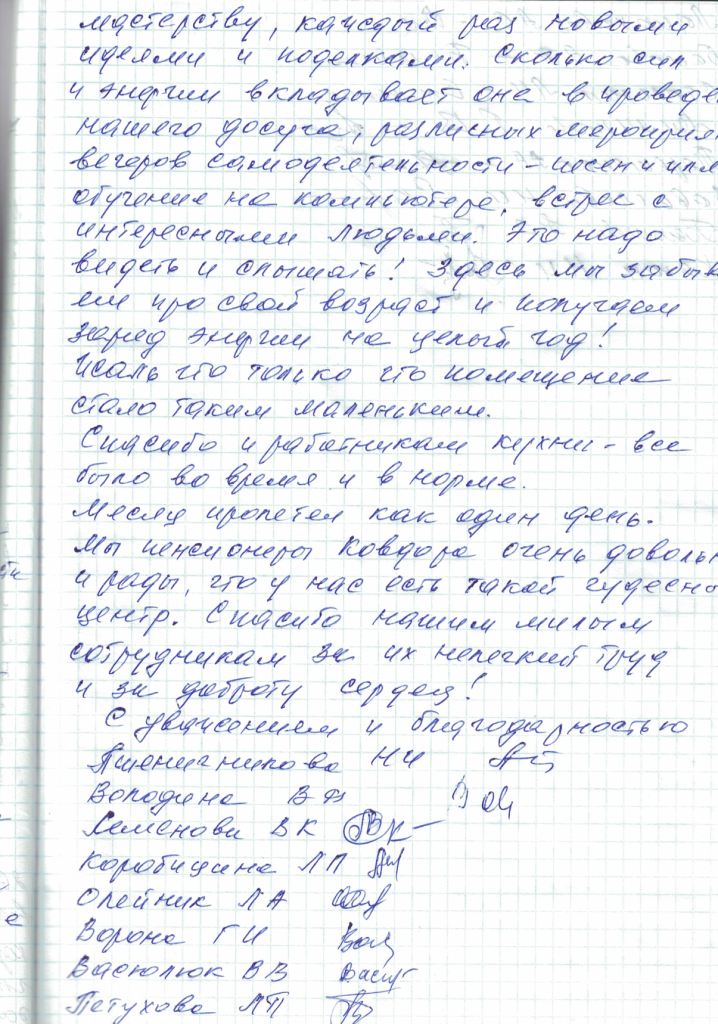 мастерству, каждый раз новыми
идеями и поделками. Сколько сил
и энергии вкладывает она в проведе
нашего досуга, различных мероприя
вечеров самодеятельности - песен и пля
обучение на компьютере, встреч с
интересными людьми. Это надо
видеть и слышать! Здесь мы забыв
ем про свой возраст и получаем
заряд энергии на целый год!
Жаль что только что помещение
стало таким маленьким.
Спасибо и работникам кухни - все
было во время и в норме.
Месяц пролетел как один день.
Мы пенсионеры Ковдора очень доволь
и рады, что у нас есть такой чудесно
центр. Спасибо нашим милым
сотрудникам за их нелегкий труд
и за доброту сердец!
С уважением и благодарностью
Пшеничникова НИ
Володина В Ф
Семенова В К
Коробицина Л П
Олейник Л А
Ворона Г И
Васюлюк В В
Петухова М П